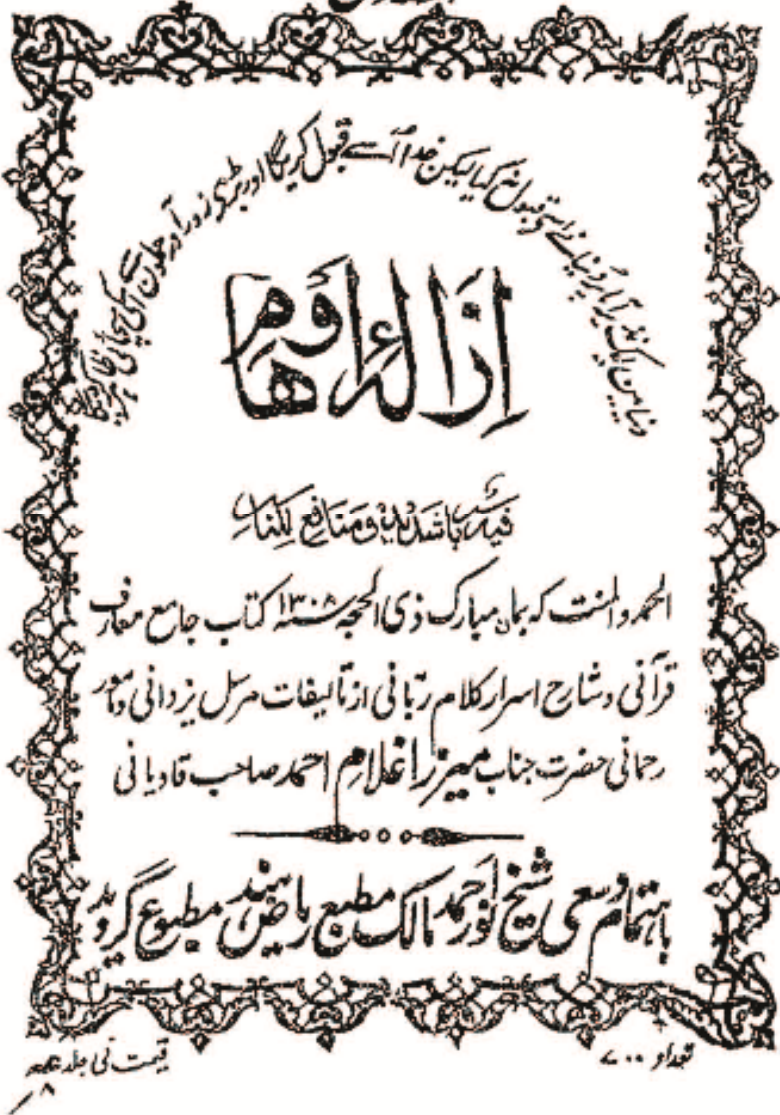 دنیا میں ایک نذیر آیا پر دنیا نے اسے قبول نہ کیا لیکن خدا اُسے قبول کریگا اور بڑی زور آور حملوں سے اُسکی سچائی ظاہر کر دیگا
اِزَالَۂ اَوْهَام
فیه بأس شدید ومنافع للناس
الحمد والمنت کہ بماہ مبارک ذی الحجہ سنہ ۱۳۰۸ کتاب جامع معارف
قرآنی و شارح اسرار کلام ربّانی از تالیفات مرسل یزدانی و مامور
رحمانی حضرت جناب میرزا غلام احمد صاحب قادیانی
باہتمام و سعی شیخ نور احمد مالک مطبع ریاض ہند مطبوع گردید
تعداد ۷۰۰
قیمت فی جلد